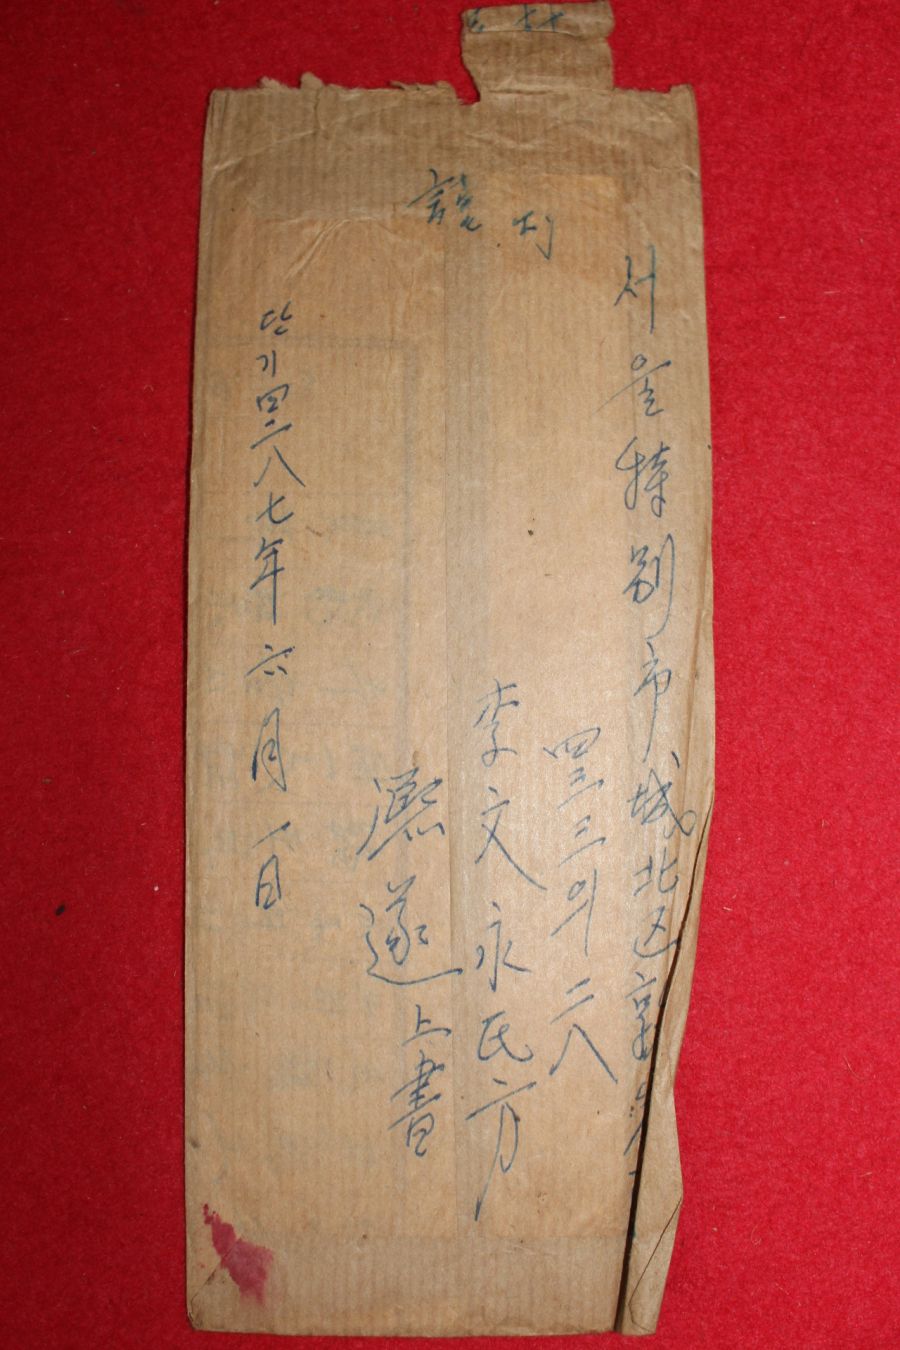 서울特別市城北区
四三三의 二八
李文永氏方
遂上書
단기四二八七年六月一日